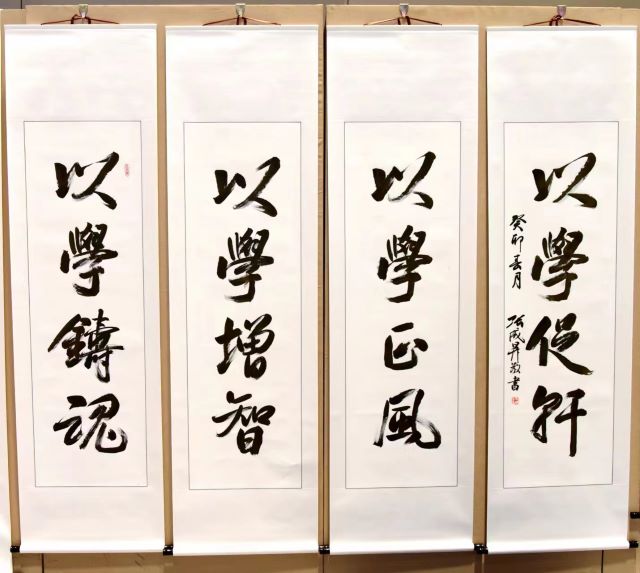 以學鑄魂
以學增智
以學正風
以學促幹
癸卯春月 張成昇敬書